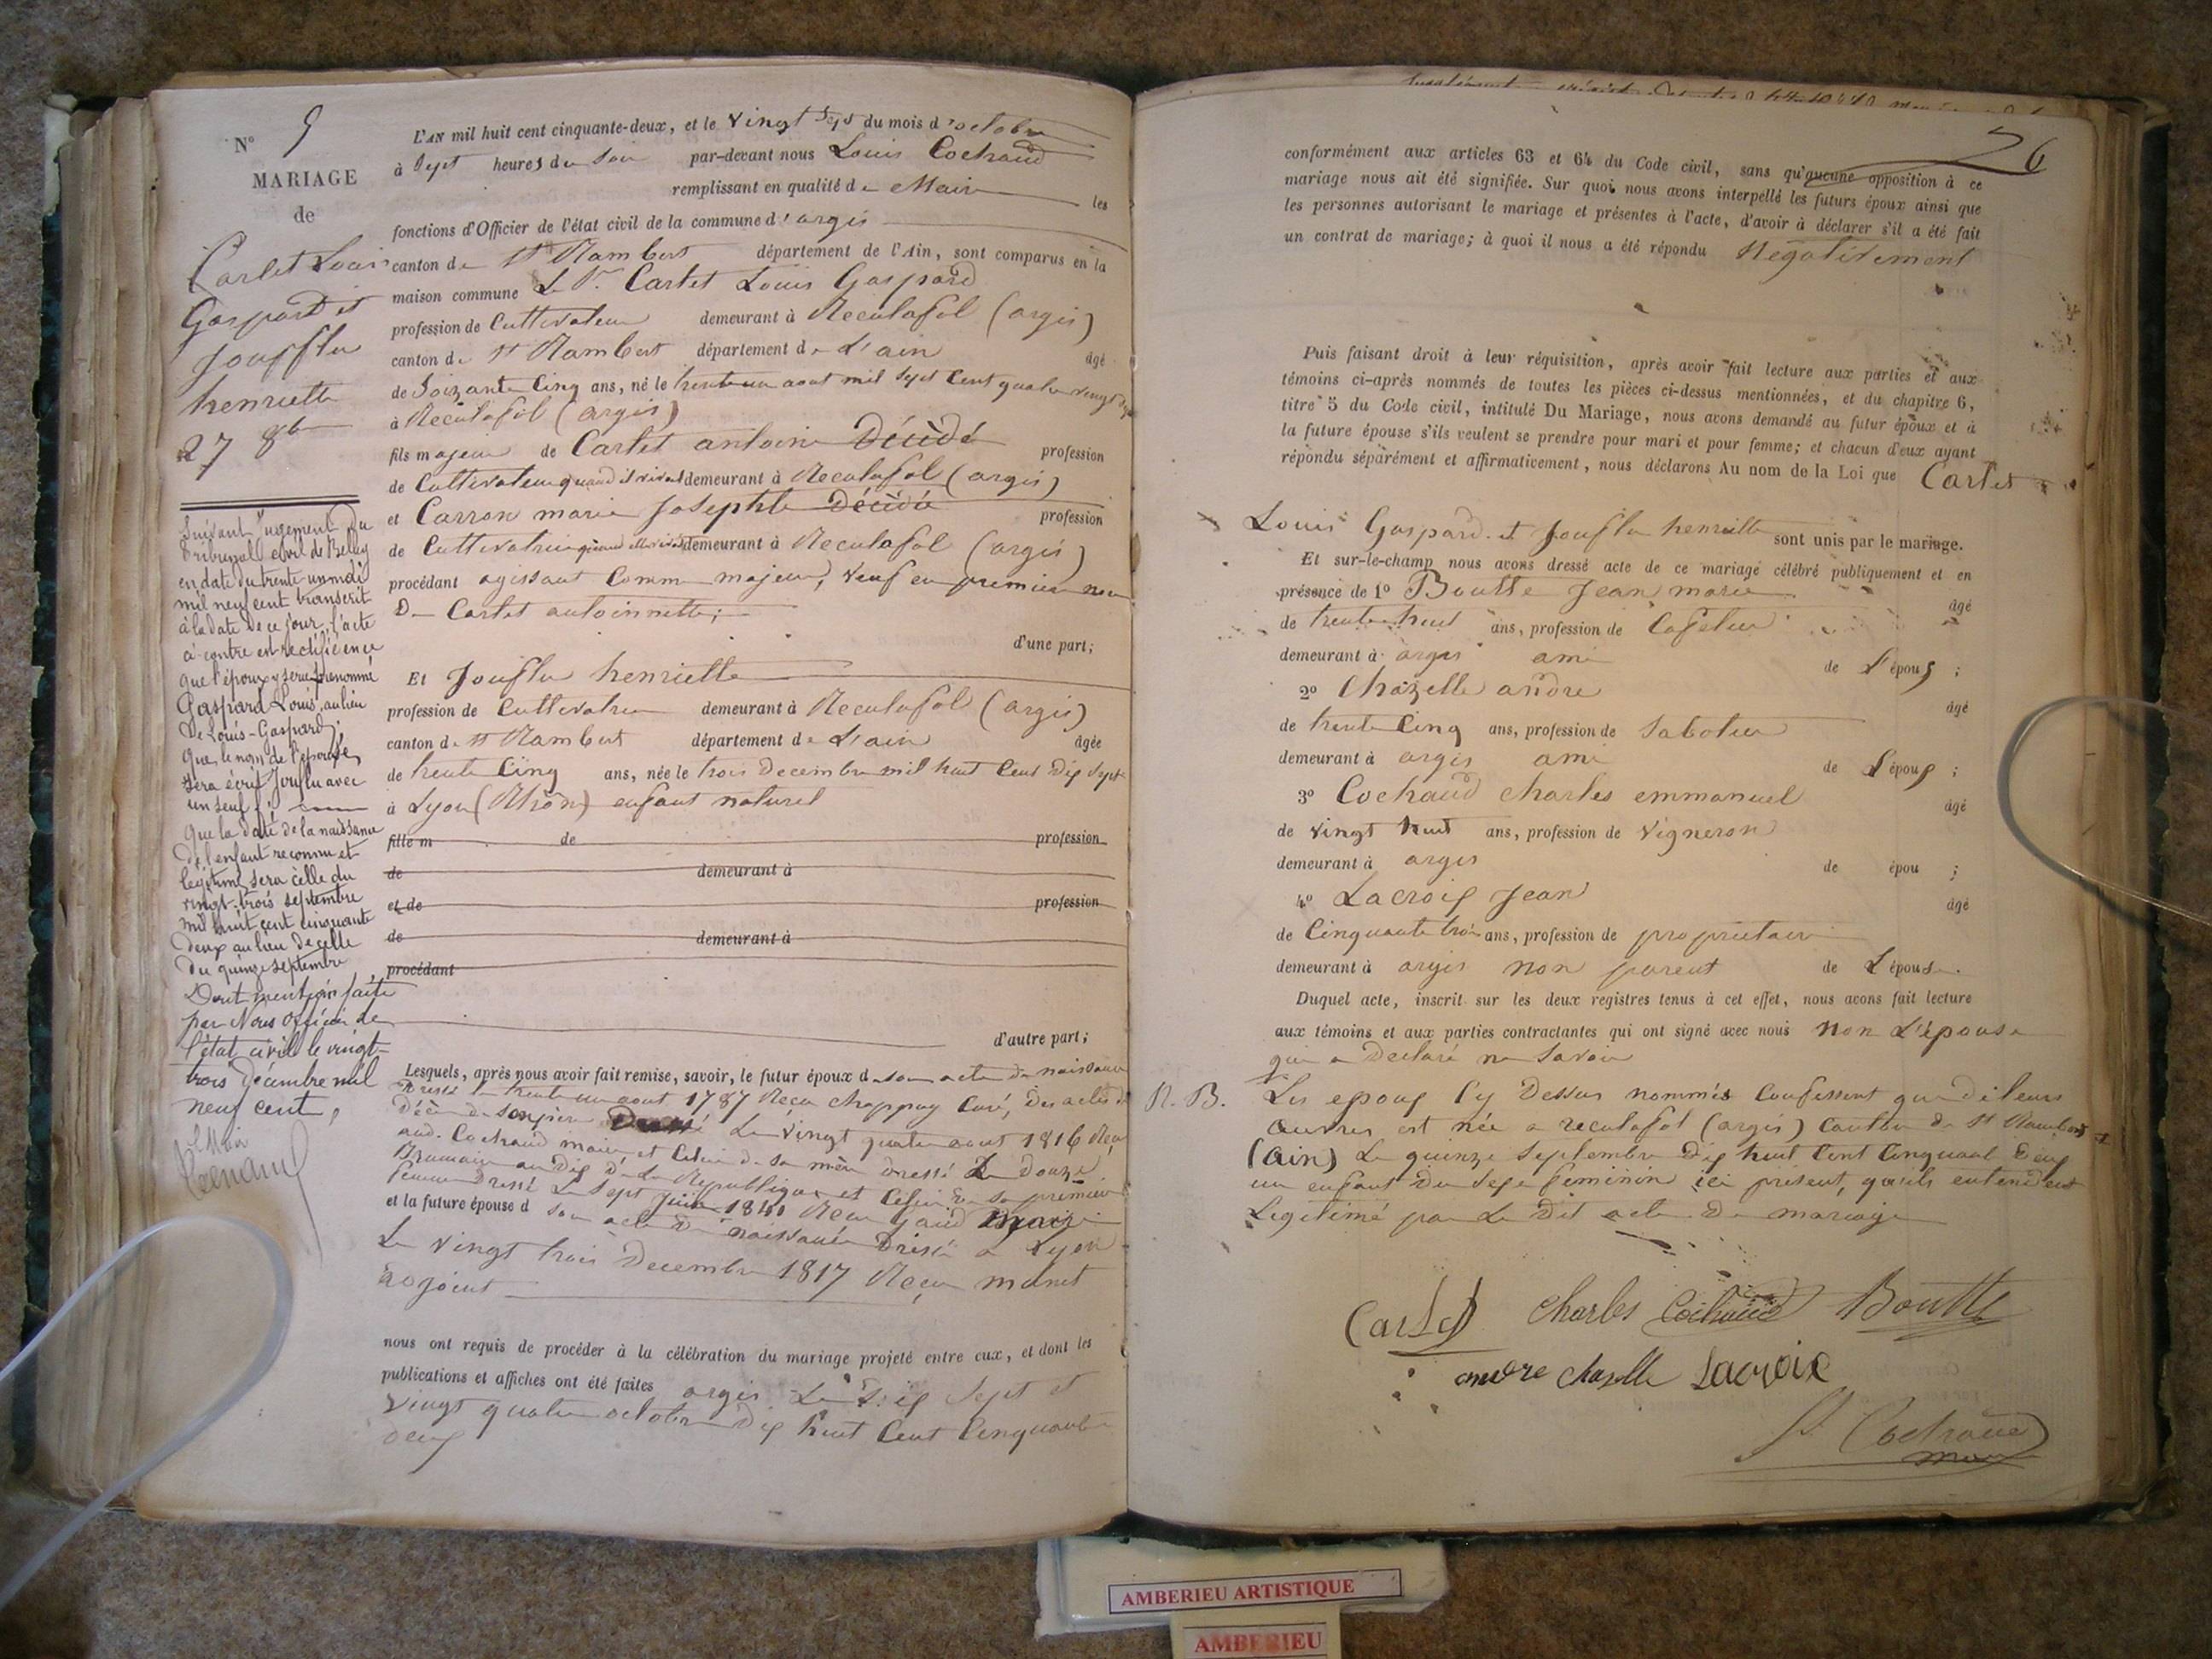 N° 9
MARIAGE
de
Carlet Louis
Gaspard et
Joufflu
henriette
27 8bre
Suivant jugement du
Tribunal civil de Belley
en date du trente un mai
mil neuf cent transcrit
à la date de ce jour, l'acte
ci-contre est rectifié en ce
que l'époux y sera prénommé
Gaspard Louis, au lieu
De Louis-Gaspard;
Que le nom de l'épouse
sera écrit Jouflu avec
un seul f;
Que la date de la naissance
de l'enfant reconnu et
légitimé sera celle du
vingt-trois septembre
mil huit cent cinquante
deux au lieu de celle
du quinze septembre
Dont mention faite
par Nous officier de
l'état civil le vingt-
trois décembre mil
neuf cent,
Le Maire
L'AN mil huit cent cinquante-deux, et le vingt sept du mois d'octobre
à Sept heures du soir par-devant nous Louis Cochaud
remplissant en qualité de Maire les
fonctions d'Officier de l'état civil de la commune d'argis
canton de St Rambert département de l'Ain, sont comparus en la
maison commune Le Sr. Carlet Louis Gaspard
profession de Cultivateur demeurant à Reculafol (argis)
canton de St Rambert département de L'ain âgé
de Soixante Cinq ans, né le trente un aout mil sept cent quatre vingt sept
à Reculafol (argis)
fils majeur de Carlet antoine Décédé profession
de Cultivateur quand il vivait demeurant à Reculafol (argis)
et Carron marie Josephte Décédée profession
de Cultivatrice quand elle vivait demeurant à Reculafol (argis)
procédant agissant Comme majeur, veuf en premier noce
De Carlet antoinnette;
d'une part;
Et Jouflu henriette
profession de Cultivatrice demeurant à Reculafol (argis)
canton de St Rambert département de L'ain âgée
de trente Cinq ans, née le trois decembre mil huit Cent Dix Sept
à Lyon (Rhône) enfant naturel
fille m de profession
de demeurant à
et de profession
de demeurant à
procédant
d'autre part;
Lesquels, après nous avoir fait remise, savoir, le futur époux de son acte de naissance
Dressé le trente un aout 1787 Reçu Chappuy Curé, Des actes de
Décès de son père Dressé Le vingt quatre aout 1816 Reçu
and. Cochaud maire, et Celui de sa mère dressé Le douze
Brumaire an Dix de La Republique et Celui de sa première
femme Dressé Le Sept Juin 1840 Reçu Jaud maire
et la future épouse d son acte De naissance Dressé a Lyon
Le vingt trois Decembre 1817 Reçu manet
adjoint
nous ont requis de procéder à la célébration du mariage projeté entre eux, et dont les
publications et affiches ont été faites argis Le Dix Sept et
vingt quatre octobre Dix huit Cent Cinquante
Deux
26
conformément aux articles 63 et 64 du Code civil, sans qu'aucune opposition à ce
mariage nous ait été signifiée. Sur quoi nous avons interpellé les futurs époux ainsi que
les personnes autorisant le mariage et présentes à l'acte, d'avoir à déclarer s'il a été fait
un contrat de mariage; à quoi il nous a été répondu Négativement
Puis faisant droit à leur réquisition, après avoir fait lecture aux parties et aux
témoins ci-après nommés de toutes les pièces ci-dessus mentionnées, et du chapitre 6,
titre 5 du Code civil, intitulé Du Mariage, nous avons demandé au futur époux et à
la future épouse s'ils veulent se prendre pour mari et pour femme; et chacun d'eux ayant
répondu séparément et affirmativement, nous déclarons Au nom de la Loi que Carlet
Louis Gaspard et Jouflu henriette sont unis par le mariage.
Et sur-le-champ nous avons dressé acte de ce mariage célébré publiquement et en
présence de 1° Boutte Jean marie âgé
de trente huit ans, profession de Cafetier
demeurant à argis ami de L'époux ;
2° Chazelle andre âgé
de trente Cinq ans, profession de Sabotier
demeurant à argis ami de L'époux ;
3° Cochaud Charles emmanuel âgé
de vingt huit ans, profession de vigneron
demeurant à argis de épou ;
4° Lacroix Jean âgé
de Cinquante trois ans, profession de propriétaire
demeurant à argis non parent de L'épouse.
Duquel acte, inscrit sur les deux registres tenus à cet effet, nous avons fait lecture
aux témoins et aux parties contractantes qui ont signé avec nous non L'épouse
qui a Declaré ne Savoir
N. B. Les epoux Cy Dessus nommés Confessent que de leurs
œuvres est née a reculafol (argis) Canton de St Rambert
(ain) Le quinze Septembre Dix huit Cent Cinquant Deux
un enfant Du Sexe feminin ici présent, qu'ils entendent
Legitimé par Le Dit acte De mariage
Carlet Charles Cochaud Boutte
andre chazelle Lacroix
Cochaud
maire
AMBERIEU ARTISTIQUE
AMBERIEU